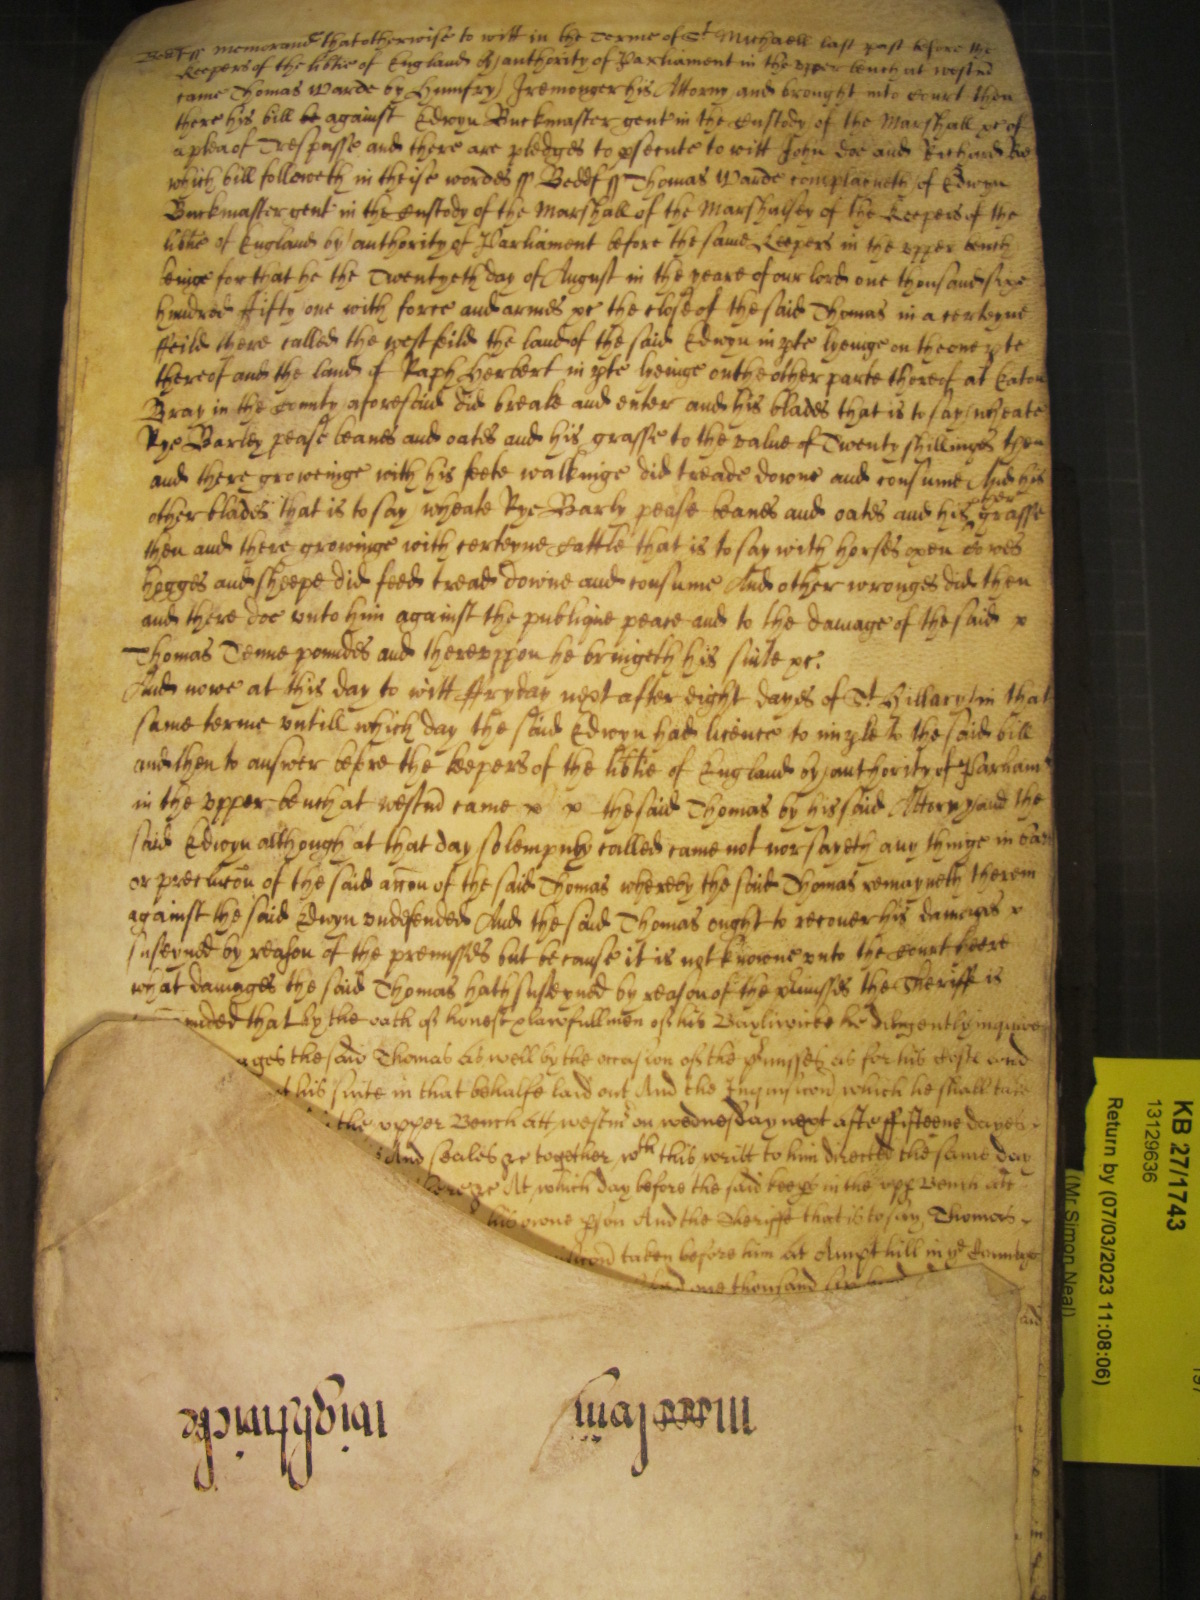 Bedd ss Memorand that otherwise to witt in the Terme of St Michaell last past before the
Keepers of the libtie of England by authority of Parliament in the vpper bench at westm
came Thomas Warde by Humfry Iremonger his Attorny and brought into Court then
there his bill against Edwyn Buckmaster gent in the Custody of the Marshall xc of
a plea of Trespasse and there are pledges to psecute to witt John Doe and Richard Roe
which bill followeth in theise wordes ss Bedd ss Thomas Warde complayneth of Edwyn
Buckmaster gent in the Custody of the Marshall of the Marshalsey of the Keepers of the
libtie of England by authority of Parliament before the same Keepers in the vpper bench
beinge for that he the Twentyeth day of August in the yeare of our lord one thousand sixe
hundred ffifty one with force and armes xc the close of the said Thomas in a certeyne
ffeild there called the west feild the land of the said Edwyn in pte lyeinge on the one pte
thereof and the land of Raph Herbert in pte lyeinge on the other parte thereof at Eaton
Bray in the County aforesaid did breake and enter and his blades that is to say wheate
Rye Barley pease beanes and oates and his grasse to the value of Twenty shillinges then
and there groweinge with his feete walkinge did treade downe and consume And his
other blades that is to say wheate Rye Barly pease beanes and oates and his other grasse
then and there growinge with certeyne Cattle that is to say with horses oxen cowes
hogges and sheepe did feed tread downe and consume And other wronges did then
and there doe vnto him against the publique peace and to the damage of the said x
Thomas Tenne poundes and therevppon he bringeth his suite xc.
And nowe at this day to witt ffryday next after eight dayes of St Hillary in that
same terme vntill which day the said Edwyn had licence to imple to the said bill
and then to answer before the keepers of the libtie of England by authority of Parliam
in the vpper bench at westm came x x the said Thomas by his said Attorny and the
said Edwyn although at that day solempnly called came not nor sayeth any thinge in barr
or preclucon of the said accon of the said Thomas whereby the said Thomas remayneth therein
against the said Edwyn vndefended And the said Thomas ought to recouer his damages x
susteyned by reason of the premisses but because it is not knowne vnto the Court heere
what damages the said Thomas hath susteyned by reason of the pmisses the Sheriff is
that by the oath of honest & lawfull men of his Bayliwicke he diligently inquire
the said Thomas as well by the occasion of the pmisses as for his Costs and
his suite in that behalfe laid out And the Inquisicon which he shall take
the vpper Bench att westm on wednesday next after ffifteene dayes
And seales xc together wth this writt to him directed the same day
xc At which day before the said keeps in the vpp Bench att
his owne pson And the Sheriffe that is to say Thomas
taken before him at Ampthill in ye County
one thousand six
wightwicke
KB 27/1743
13129636
Return by (07/03/2023 11:08:06)
(Mr Simon Neal)